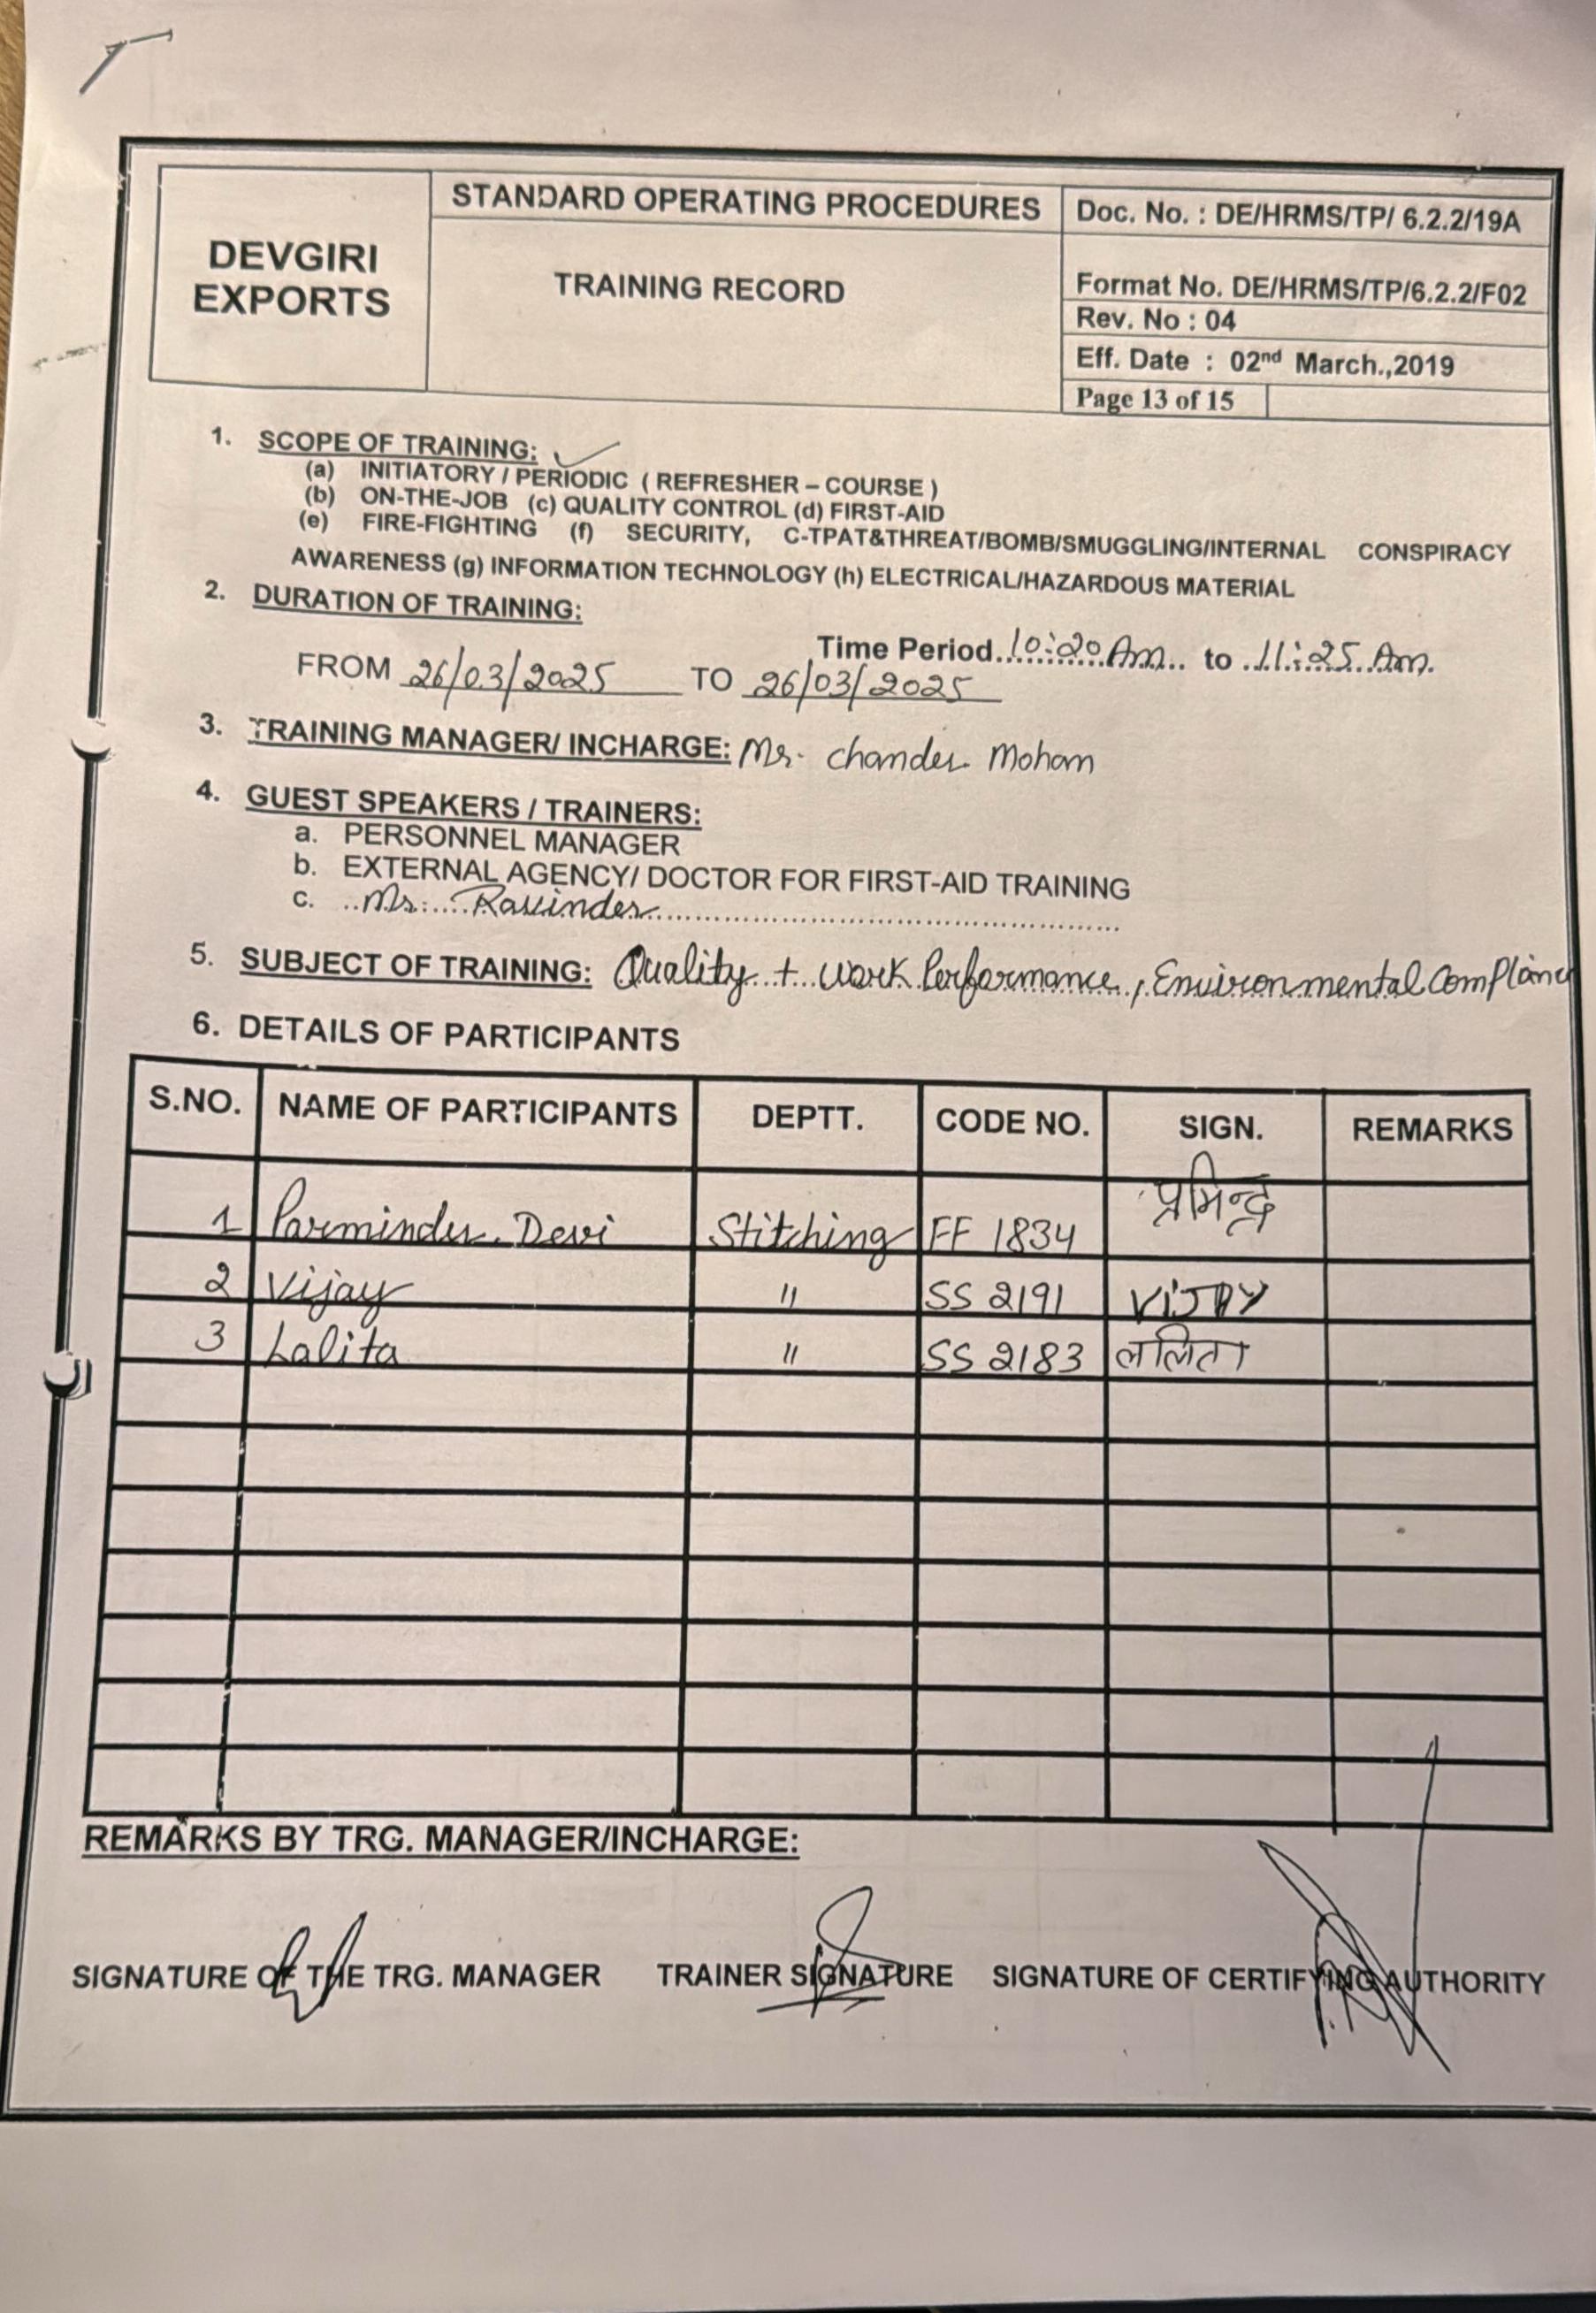 DEVGIRI
EXPORTS
STANDARD OPERATING PROCEDURES
TRAINING RECORD
Doc. No. : DE/HRMS/TP/ 6.2.2/19A
Format No. DE/HRMS/TP/6.2.2/F02
Rev. No : 04
Eff. Date : 02nd March.,2019
Page 13 of 15
1. SCOPE OF TRAINING:
(a) INITIATORY / PERIODIC ( REFRESHER – COURSE )
(b) ON-THE-JOB (c) QUALITY CONTROL (d) FIRST-AID
(e) FIRE-FIGHTING (f) SECURITY, C-TPAT&THREAT/BOMB/SMUGGLING/INTERNAL CONSPIRACY
AWARENESS (g) INFORMATION TECHNOLOGY (h) ELECTRICAL/HAZARDOUS MATERIAL
2. DURATION OF TRAINING:
Time Period..10:20 Am.. to ..11:25 Am.
FROM 26/03/2025 TO 26/03/2025
3. TRAINING MANAGER/ INCHARGE: Mr. Chander Mohan
4. GUEST SPEAKERS / TRAINERS:
a. PERSONNEL MANAGER
b. EXTERNAL AGENCY/ DOCTOR FOR FIRST-AID TRAINING
c. ..Mr....Ravinder..............................
5. SUBJECT OF TRAINING: Quality + Work Performance, Environmental Complianc
6. DETAILS OF PARTICIPANTS
S.NO. NAME OF PARTICIPANTS DEPTT. CODE NO. SIGN. REMARKS
1 Parminder Devi Stitching FF 1834 प्रमिन्द्र
2 Vijay " SS 2191 VIJAY
3 Lalita " SS 2183 ललिता
REMARKS BY TRG. MANAGER/INCHARGE:
SIGNATURE OF THE TRG. MANAGER TRAINER SIGNATURE SIGNATURE OF CERTIFYING AUTHORITY